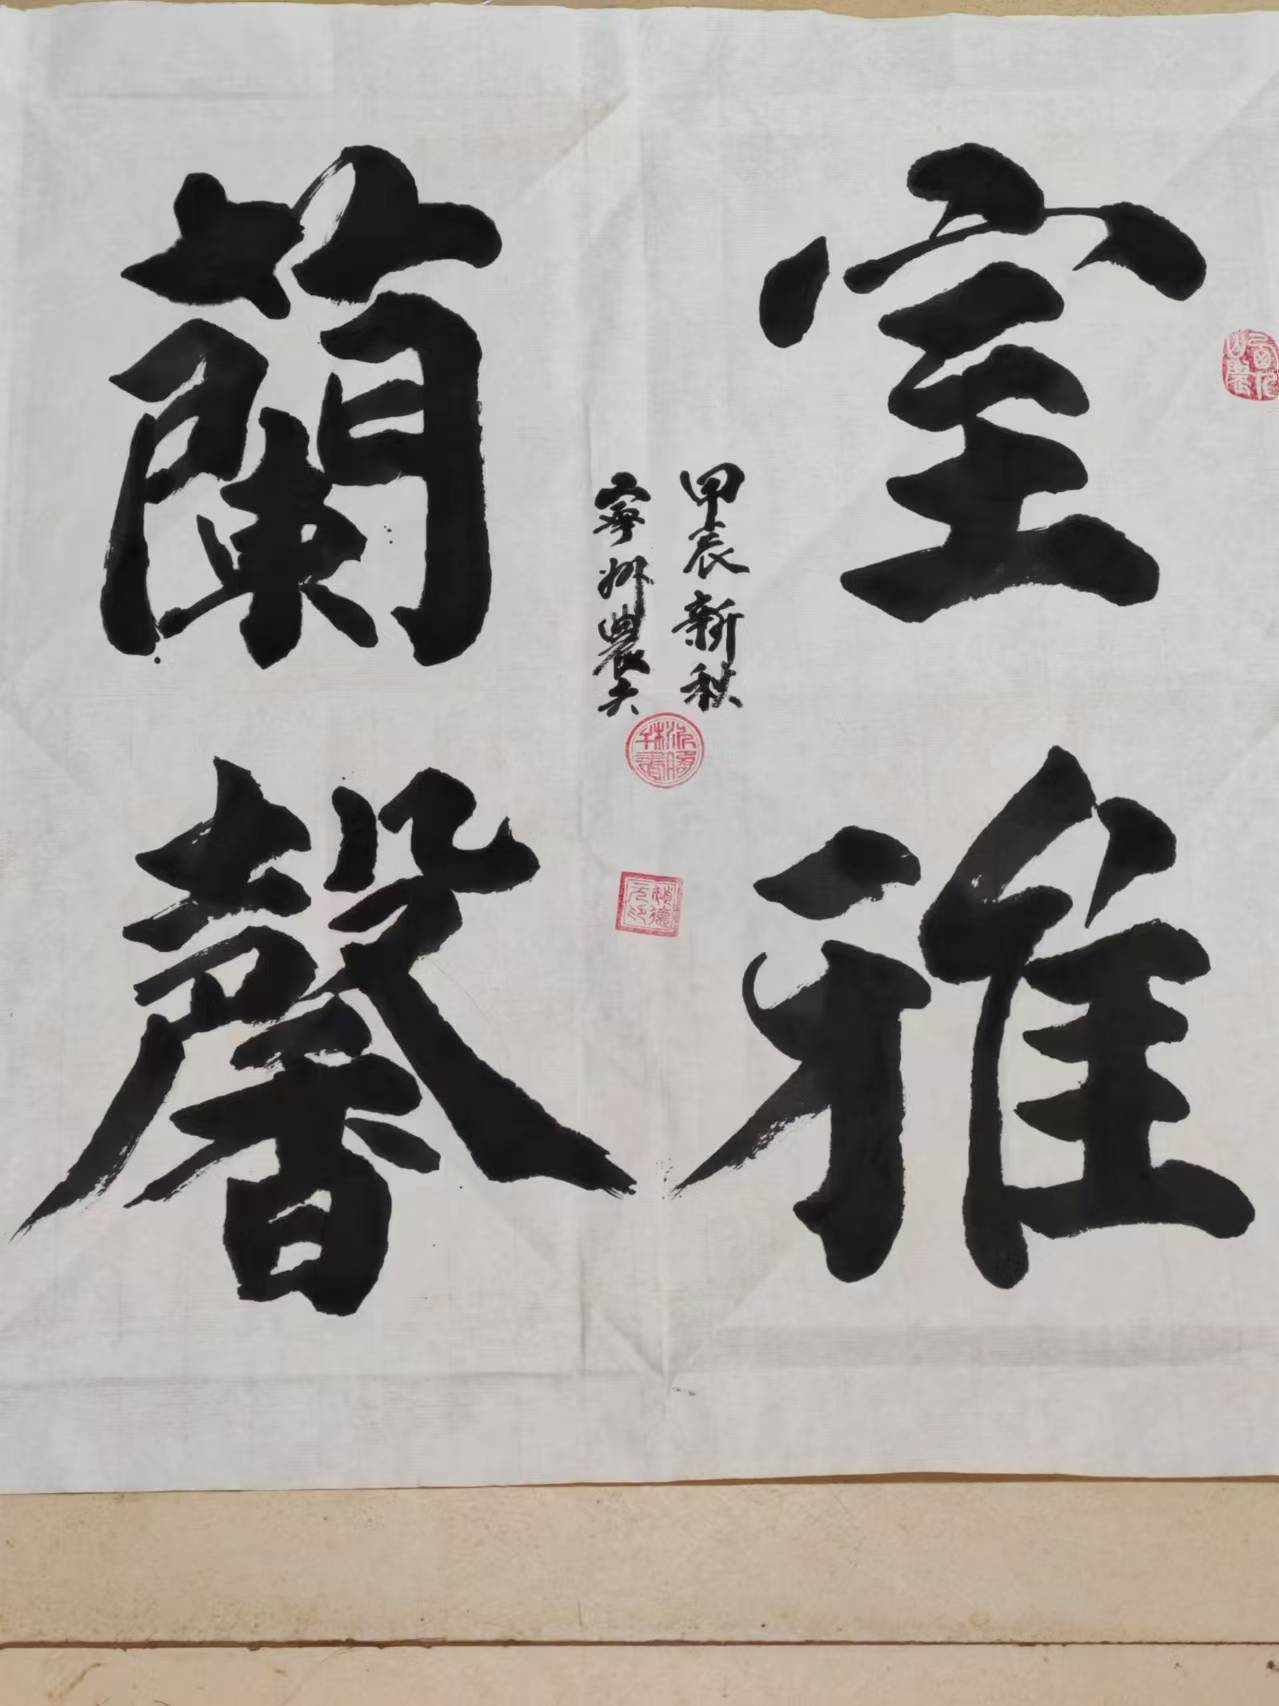 室雅
蘭馨
甲辰新秋
寧州農夫